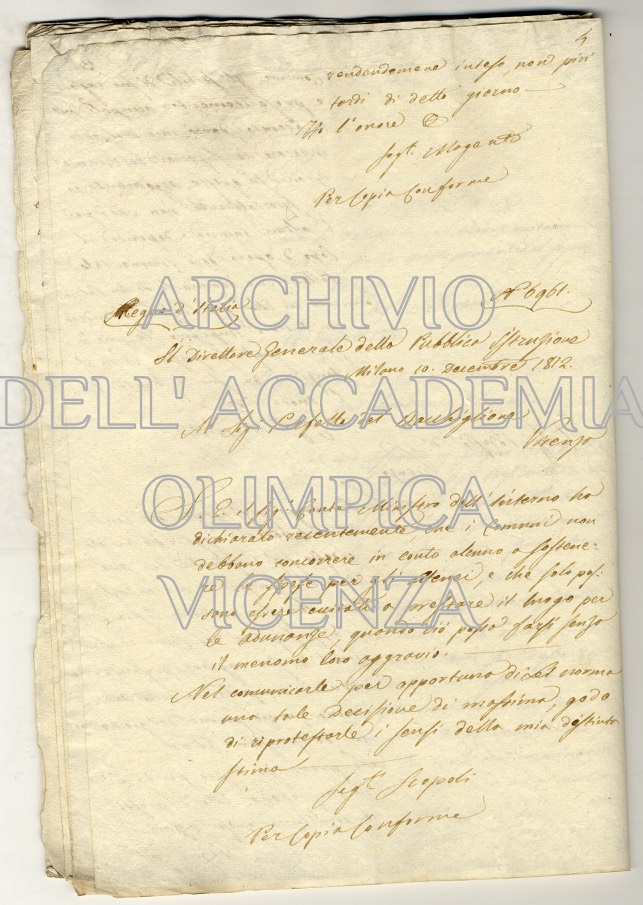 4
rendendomene inteso, non più
tardi di detto giorno
Ho l'onore
Segt. Magenta
Per Copia Conforme
Regno d'Italia
N° 6961.
Il Direttore Generale della Pubblica Istruzione
Milano 10. decembre 1812.
Al Sig. Prefetto del Bacchiglione
Vicenza
S. E. il Sig. Conte Ministro dell'Interno ha
dichiarato recentemente, che i Comuni non
debbono concorrere in conto alcuno a sostene-
re le spese per gli Atenei, e che solo pos-
sono essere a prestare il luogo per
le adunanze, quando ciò possa farsi senza
il menomo loro aggravio.
Nel comunicarle per opportuna di Lei norma
una tale Decisione di massima, godo
di riprotestarle i sensi della mia distinta
stima
Segt. Scopoli
Per Copia Conforme
ARCHIVIO
DELL' ACCADEMIA
OLIMPICA
VICENZA